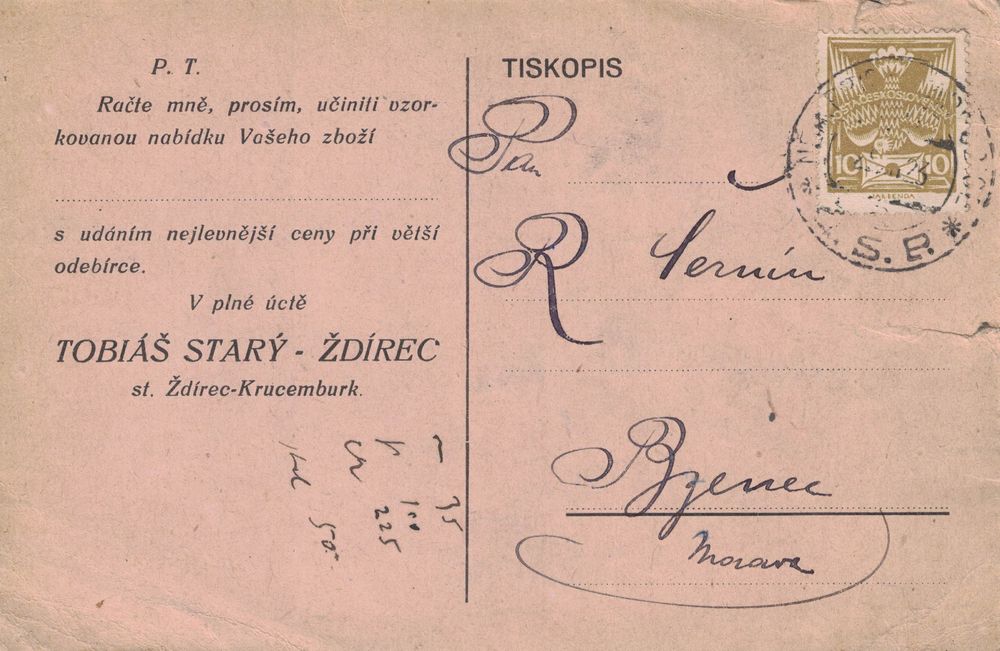 P. T.
Račte mně, prosím, učiniti vzor-
kovanou nabídku Vašeho zboží
s udáním nejlevnější ceny při větší
odebírce.
V plné úctě
TOBIÁŠ STARÝ - ŽDÍREC
st. Ždírec-Krucemburk.
35
100
225
50
TISKOPIS
Pan
R
Bzenec
Morava
POŠTA ČESKOSLOVENSKÁ
10 10
S. P.